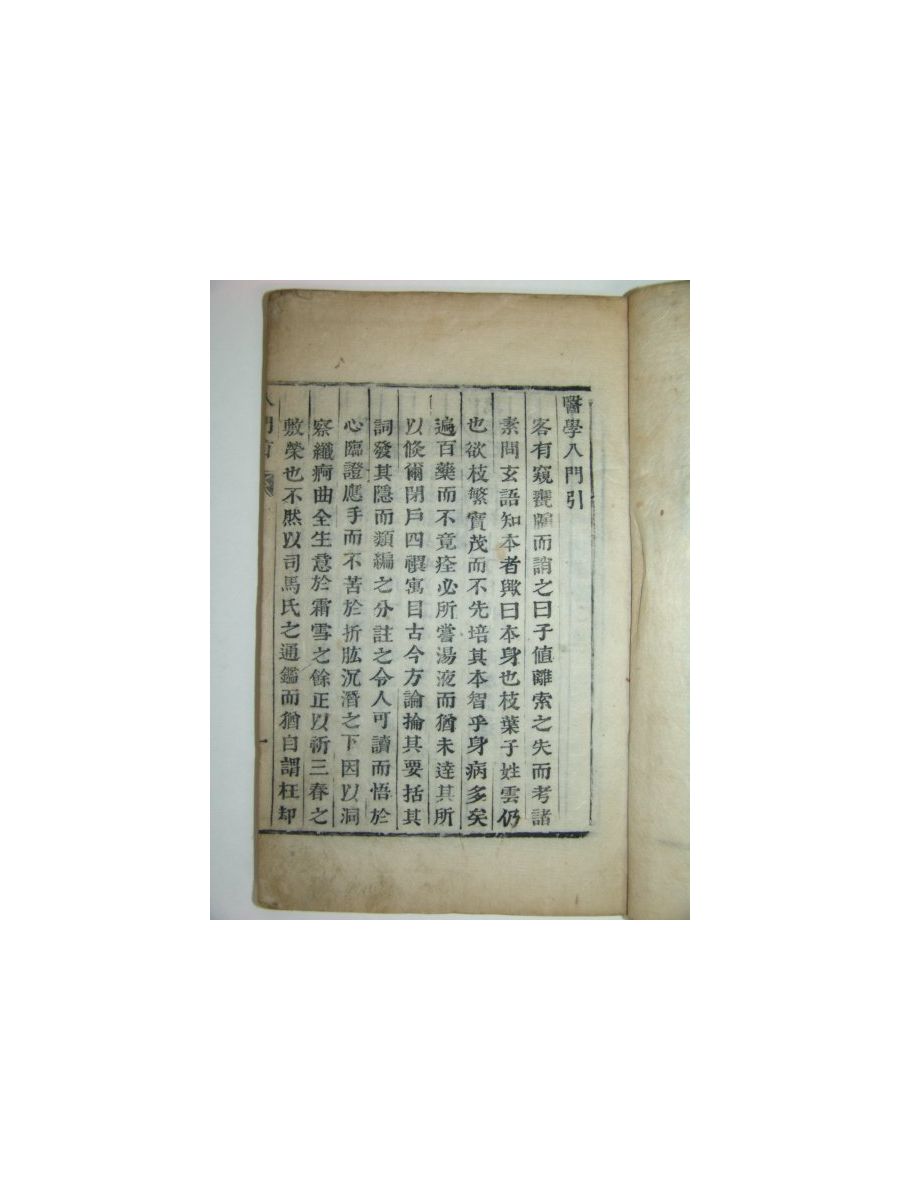 醫學入門引
客有窺甕牖而誚之曰子値離索之失而考諸
素問玄語知本者歟曰本身也枝葉子姓雲仍
也欲枝繁實茂而不先培其本智乎身病多矣
遍百藥而不竟痊必所嘗湯液而猶未達其所
以倐爾閉戶四禩寓目古今方論掄其要括其
詞發其隱而類編之分註之令人可讀而悟於
心臨證應手而不苦於折肱沉潛之下因以洞
察纖痾曲全生意於霜雪之餘正以祈三春之
敷榮也不然以司馬氏之通鑑而猶自謂枉却
入門
一